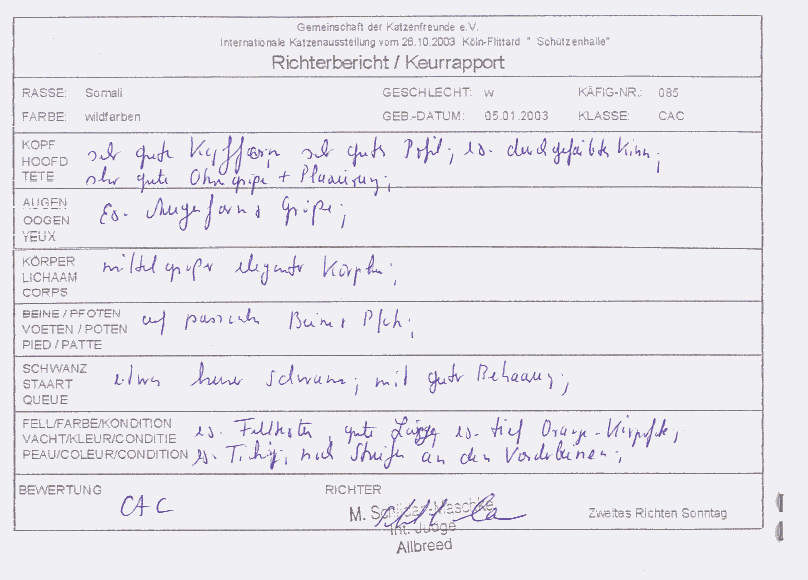 Gemeinschaft der Katzenfreunde e.V.
Internationale Katzenausstellung vom 26.10.2003 Köln-Flittard " Schützenhalle"
Richterbericht / Keurrapport
RASSE: Somali GESCHLECHT: w KÄFIG-NR.: 085
FARBE: wildfarben GEB.-DATUM: 05.01.2003 KLASSE: CAC
KOPF
HOOFD
TETE
sehr gute Kopfform, sehr gutes Profil; ex. durchgefärbtes Kinn;
sehr gute Ohrengröße + Plazierung;
AUGEN
OOGEN
YEUX
Ex. Augenform + Größe;
KÖRPER
LICHAAM
CORPS
mittelgroßer eleganter Körper;
BEINE / PFOTEN
VOETEN / POTEN
PIED / PATTE
auf passenden Beinen + Pfoten;
SCHWANZ
STAART
QUEUE
etwas Schwanz; mit guter Behaarung;
FELL/FARBE/KONDITION
VACHT/KLEUR/CONDITIE
PEAU/COLEUR/CONDITION
ex. Felltextur, gute Länge, ex. tief Orange-
ex. Ticking, noch Streifen an den Vorderbeinen;
BEWERTUNG
CAC
RICHTER
M.
Int. Judge
Allbreed
Zweites Richten Sonntag